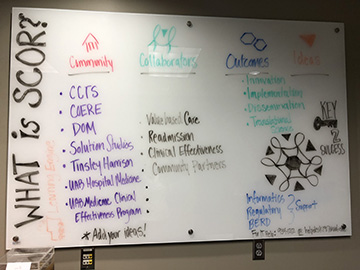 WHAT IS SCOR?
Community
• CCTS
• COERE
• DOM
• Solution Studios
• Tinsley Harrison
• UAB Hospital Medicine
• UAB Medicine Clinical
Effectiveness Program
* Add your ideas!
Collaborators
• Value based Care
• Readmission
• Clinical Effectiveness
• Community Partners
Outcomes
• Innovation
• Implementation
• Dissemination
• Translational
Science
Ideas
KEY
2
SUCCESS
Informatics
Regulatory
BERD
Support